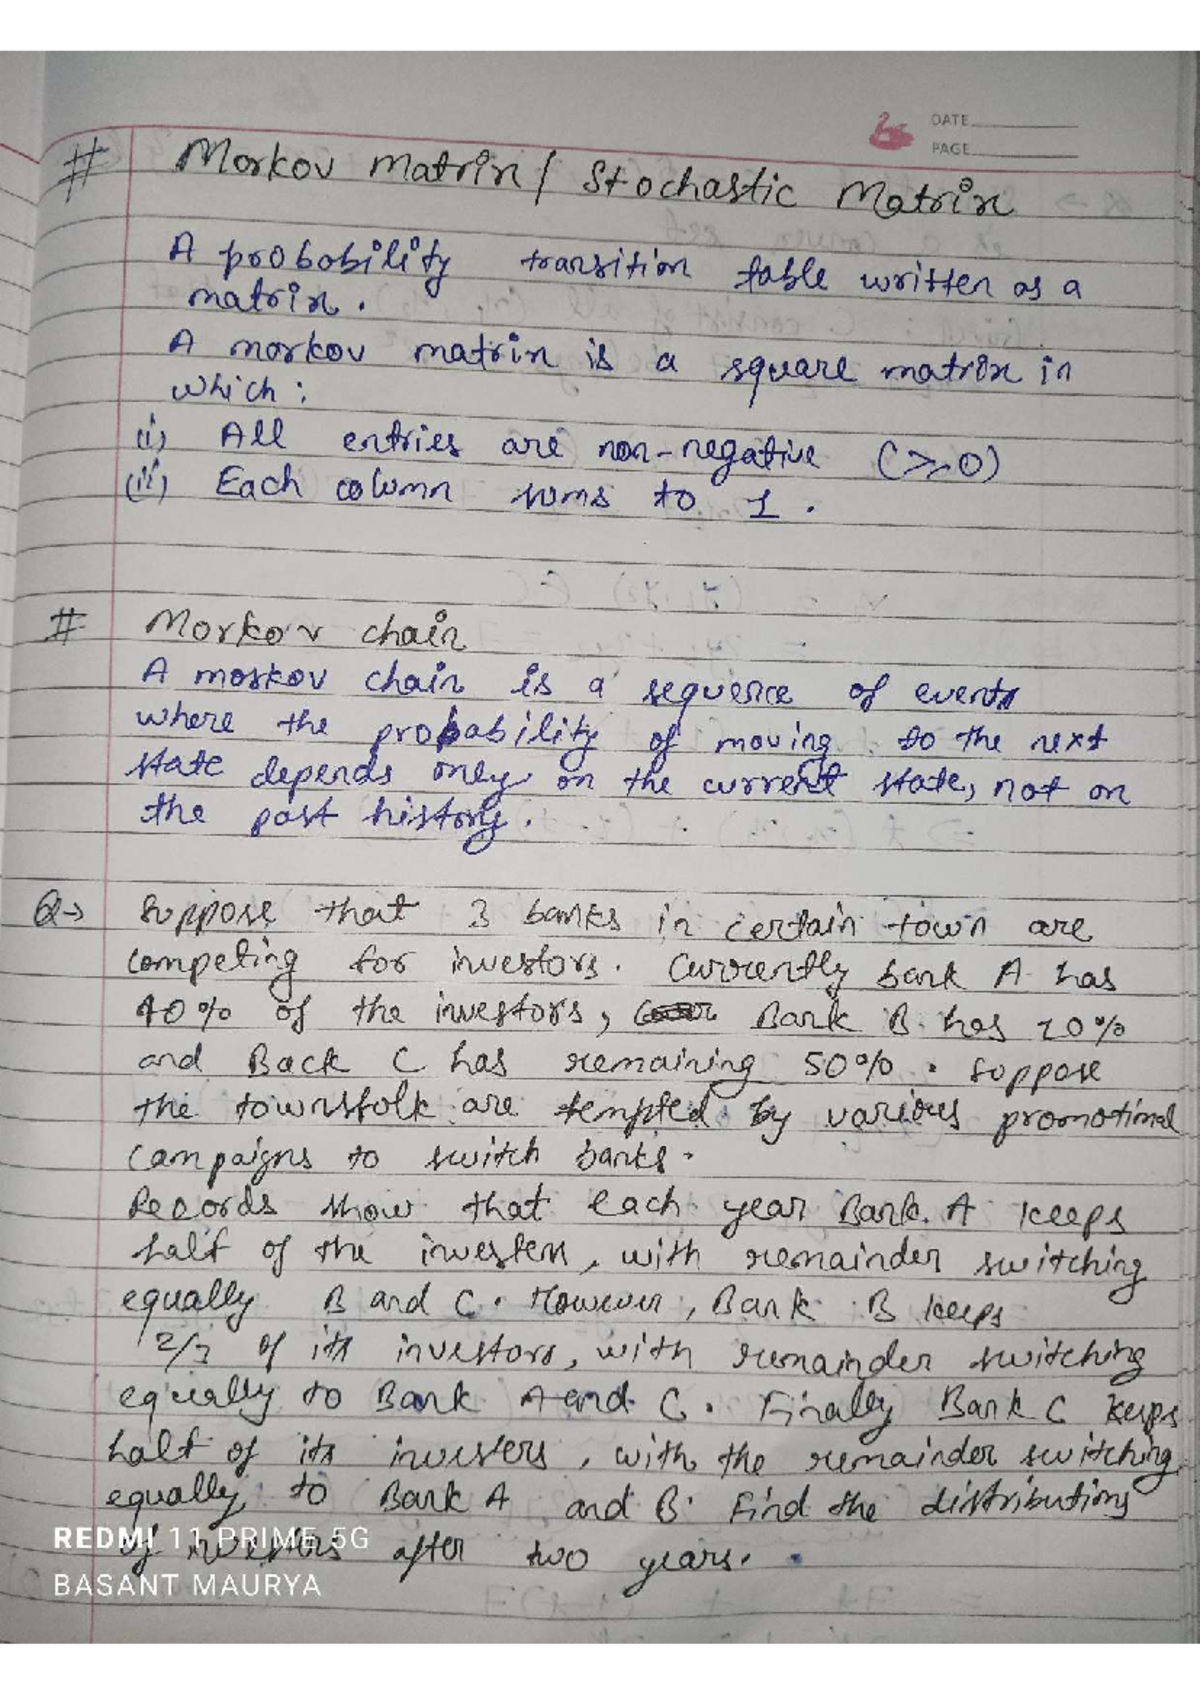 DATE
PAGE
# Morkov Matrix / Stochastic Matrix
A probability transition table written as a
matrix.
A morkov matrix is a square matrix in
which :
(i) All entries are non-negative (≥0)
(ii) Each column sums to 1.
# Morkov chain
A morkov chain is a sequence of events
where the probability of moving to the next
state depends only on the current state, not on
the past history.
Q→ Suppose that 3 banks in certain town are
competing for investors. Currently bank A has
40% of the investors, Bank B has 10%
and Back C has remaining 50%. Suppose
the townsfolk are tempted by various promotional
campaigns to switch banks.
Records show that each year Bank A keeps
half of the investers, with remainder switching
equally B and C. However, Bank B keeps
2/3 of its investors, with remainder switching
equally to Bank A and C. Finally Bank C keeps
half of its investers, with the remainder switching
equally to Bank A and B. Find the distributions
of investors after two years.
REDMI 11 PRIME 5G
BASANT MAURYA